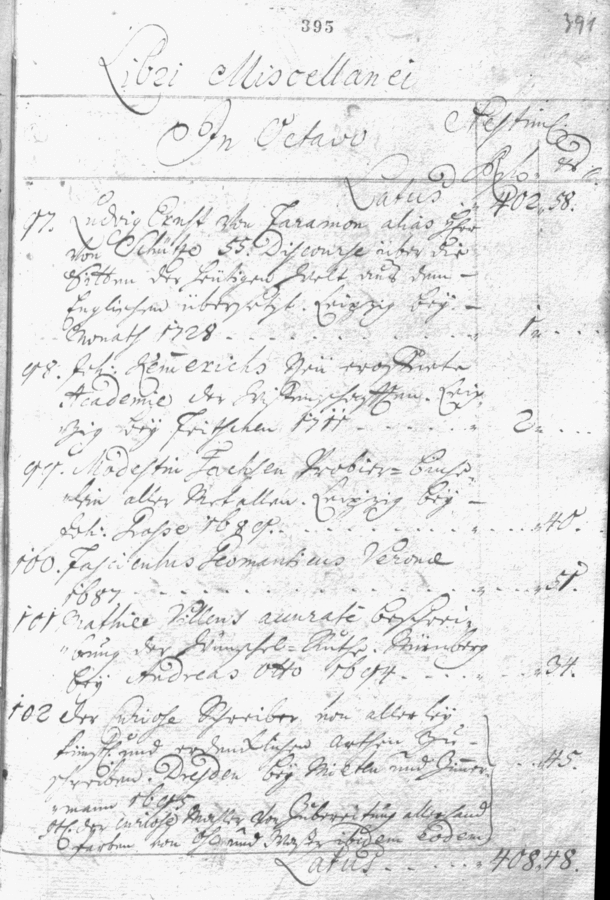 395
391
Libri Miscellanei
In Octavo
Aestim
Rfl. xr.
Latus 402. 58.
97. Ludvig Ernst von Faramon alias Herr
von Schütze 55. Discourse über die
Sitten der heütigen Welt aus dem
Englischen übersetzt. Leipzig beÿ
Monath 1728 1.
98. Joh: Hemerichs Neu eröffnete
Academie der Wissenschafften. Leip
zig beÿ Fritschen 1711 2.
99. Modestin Fachsen Probier= büch
lein aller Metallen. Leipzig beÿ
Joh: Grosse 1689. 40.
100. Fasciculus Geomanticus Veronæ
1687 51.
101 Mathiee Willens accurate beschrei
bung der Wünschel=Ruthe. Nürnberg
beÿ Andreas Otto 1694. 34.
102 Der curiose Schreiber von allerleÿ
künst: und erdencklichen Arthen zu
schreiben. Dresden beÿ Mieth und Zimmer 45.
mann 1695
der curiose Mahler von Zubereitung allerhand
farben von Öhl und Wasser ibidem eodem
Latus 408. 48.